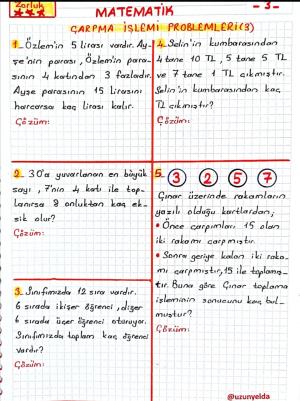 Zorluk
★★★
MATEMATİK
- 3 -
ÇARPMA İŞLEMİ PROBLEMLERİ (3)
1- Özlem'in 5 lirası vardır. Ay-
şe'nin parası, Özlem'in para-
sının 4 katından 3 fazladır.
Ayşe parasının 15 lirasını
harcarsa kaç lirası kalır.
Çözüm:
4. Selin'in kumbarasından
4 tane 10 TL, 5 tane 5 TL
ve 7 tane 1 TL çıkmıştır.
Selin'in kumbarasından kaç
TL çıkmıştır?
Çözüm:
2- 30'a yuvarlanan en büyük
sayı, 7'nin 4 katı ile top-
lanırsa 8 onluktan kaç ek-
sik olur?
Çözüm:
5-
3 2 5 7
Çınar üzerinde rakamların
yazılı olduğu kartlardan;
• Önce çarpımları 15 olan
iki rakamı çarpmıştır.
• Sonra geriye kalan iki raka-
mı çarpmıştır, 15 ile toplamış-
tır. Buna göre Çınar toplama
işleminin sonucunu kaç bul-
muştur?
Çözüm:
3- Sınıfımızda 12 sıra vardır.
6 sırada ikişer öğrenci, diğer
6 sırada üçer öğrenci oturuyor.
Sınıfımızda toplam kaç öğrenci
vardır?
Çözüm:
@uzunyelda